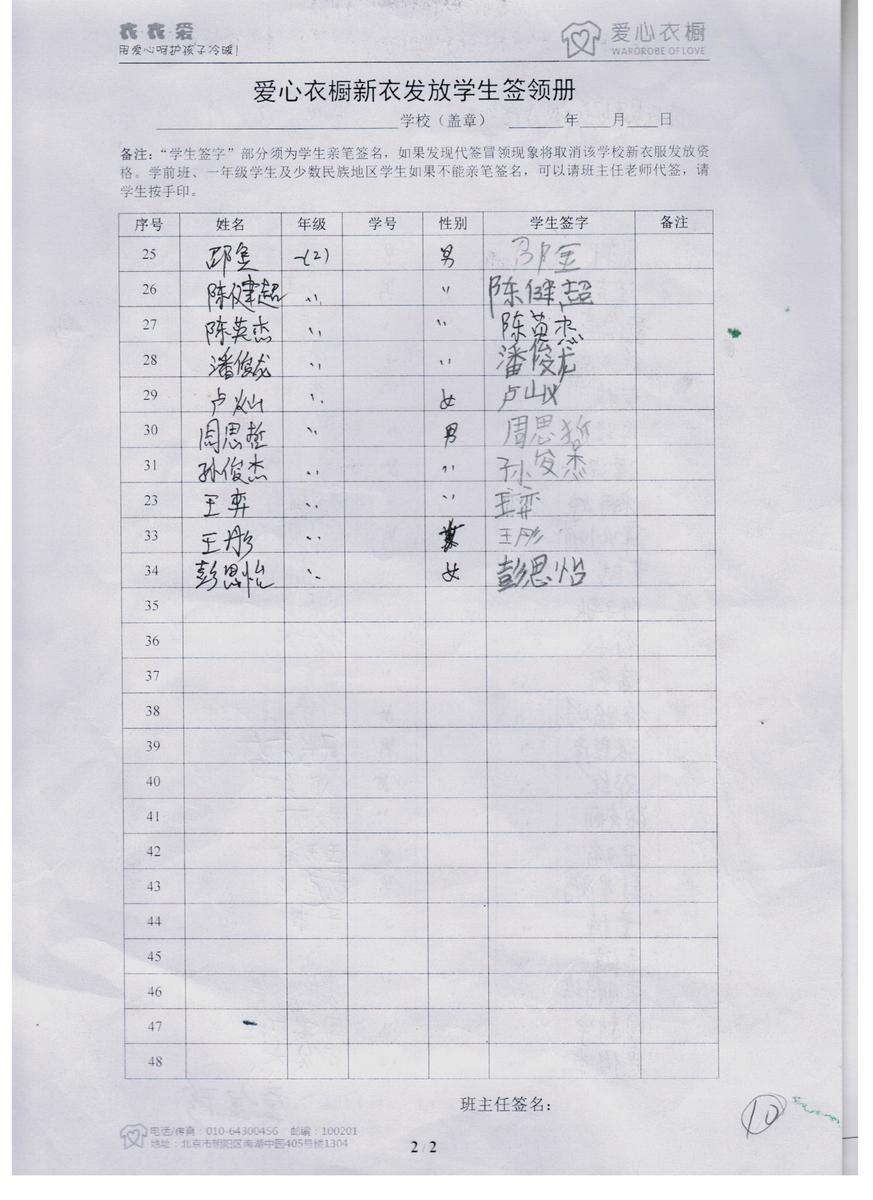 衣·衣·爱
用爱心呵护孩子冷暖!
爱心衣橱
WARDROBE OF LOVE
爱心衣橱新衣发放学生签领册
学校（盖章） 年 月 日
备注：“学生签字”部分须为学生亲笔签名，如果发现代签冒领现象将取消该学校新衣服发放资
格。学前班、一年级学生及少数民族地区学生如果不能亲笔签名，可以请班主任老师代签，请
学生按手印。
序号 姓名 年级 学号 性别 学生签字 备注
25 邵金 一(2) 男 邵金
26 陈健超 〃 〃 陈健超
27 陈英杰 〃 〃 陈英杰
28 潘俊龙 〃 〃 潘俊龙
29 卢 〃 女 卢
30 周思哲 〃 男 周思哲
31 孙俊杰 〃 〃 孙俊杰
23 王弈 〃 〃 王弈
33 王彤 〃 王彤
34 彭思怡 〃 女 彭思怡
35
36
37
38
39
40
41
42
43
44
45
46
47
48
班主任签名：
10
电话/传真：010-64300456 邮编：100201
地址：北京市朝阳区南湖中园405号楼1304
2 / 2